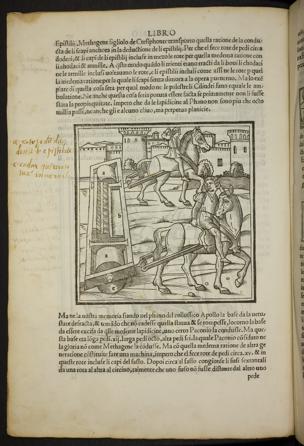 LIBRO
Epistilii, Methogene figliolo de Ctesiphonte transportò questa ratione de la condu-
cta de li scapi anchora in la deductione de li epistilii. Per che el fece rote de pedi circa
duodeci, & li capi de li epistilii incluse in mezo le rote per questa medema ratione con
li chodaci & armille. A q̃sto modo quãdo li lignei erano tracti da li boui li chodaci
ne le armille inclusi uoltauano le rote, e li epistilii inclusi como assi ne le rote p̃ quel-
la medema ratione per la quale li scapi senza dimora a lopera puenerno. Ma lo exẽ-
plare di q̃sta cosa sera per qual modo ne le palestre li Cilindri fano equale le am-
bulatione. Ne anche questa cosa seria potuta essere facta se primamente non li fusse
stata la propinquitate. Impero che da le lapidicine al Phano non sono piu che octo
millia passi, ne anche gli e alcuno cliuo, ma perpetuo planicie.
Ma ne la nostra memoria siando nel phano del collossico Apollo la base da la uetu-
state defracta, & temẽdo che nõ cadesse quella statua & se rompesse, locorno la base
da essere excisa da esse medeme lapidicine, uno certo Paconio la conduse. Ma que-
sta base era lõga pedi .xij. larga pedi octo, alta pedi sei. la quale Paconio cõdusse ne
la gloria nõ come Methagene la cõdusse. Ma cõ quella medema ratione de altra ge
neratione cõstituite fare una machina, impero che el fece rote de pedi circa .xv. & in
queste rote incluse li capi del saxo. Dopoi circa il saxo congiunse li fusi sextantali
da una rota al altra al circino, talmente che uno fuso nõ fusse distante dal altro uno
pede